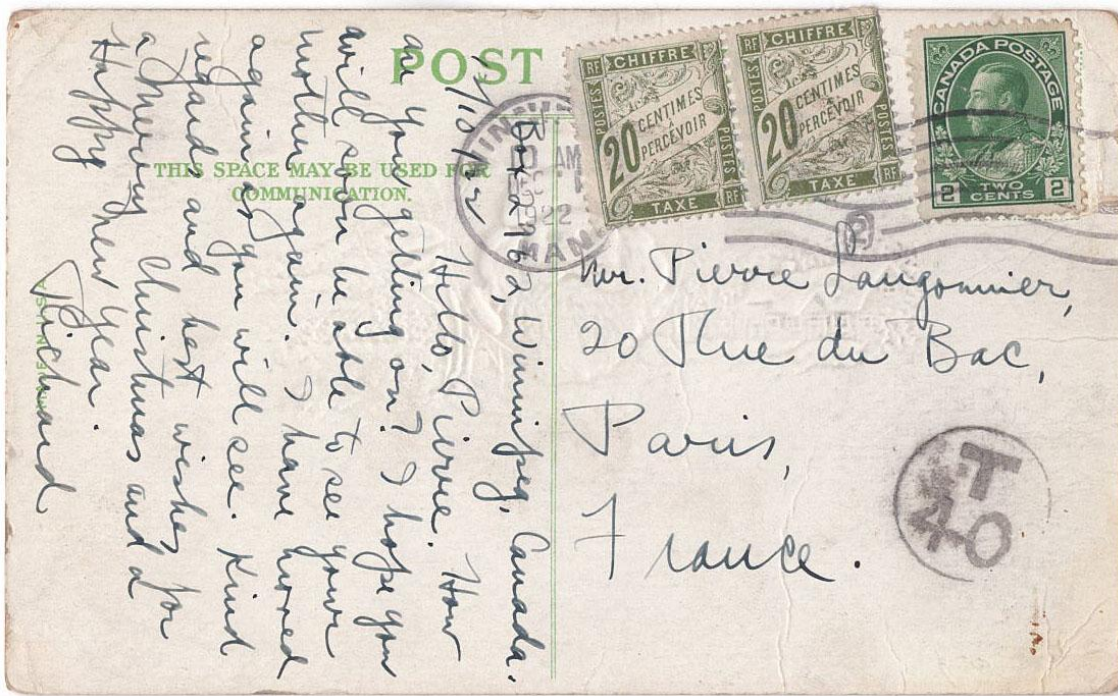 POST
THIS SPACE MAY BE USED FOR
COMMUNICATION.
Box 2962, Winnipeg, Canada.
Hello, Pierre. How
are you getting on? I hope you
will soon be able to see your
mother again. I have moved
again as you will see. Kind
regards and best wishes for
a Merry Christmas and a
Happy New Year.
Richard
RF CHIFFRE
POSTES
20 CENTIMES
PERCEVOIR
POSTES
TAXE RF
RF CHIFFRE
POSTES
20 CENTIMES
PERCEVOIR
POSTES
TAXE RF
CANADA POSTAGE
2 TWO CENTS 2
AM
1922
MAN
Mr. Pierre Langonnier,
20 Rue du Bac,
Paris,
France.
T
40